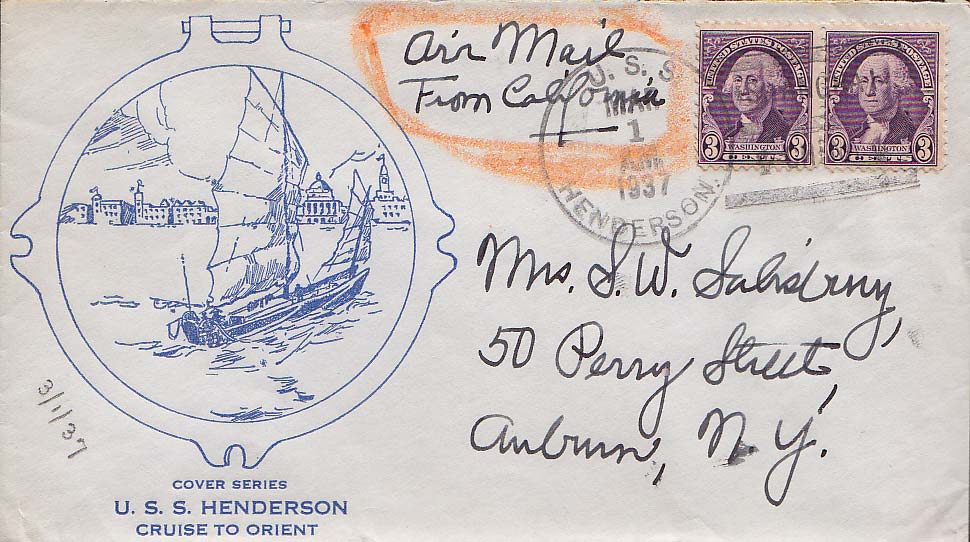 Air Mail
From California
U. S. S.
MAR
1
AM
1937
HENDERSON.
UNITED STATES POSTAGE
3 WASHINGTON 3
CENTS
UNITED STATES POSTAGE
3 WASHINGTON 3
CENTS
Mrs. S. W. Salisbury,
50 Perry Street,
Auburn, N. Y.
3/1/37
COVER SERIES
U. S. S. HENDERSON
CRUISE TO ORIENT